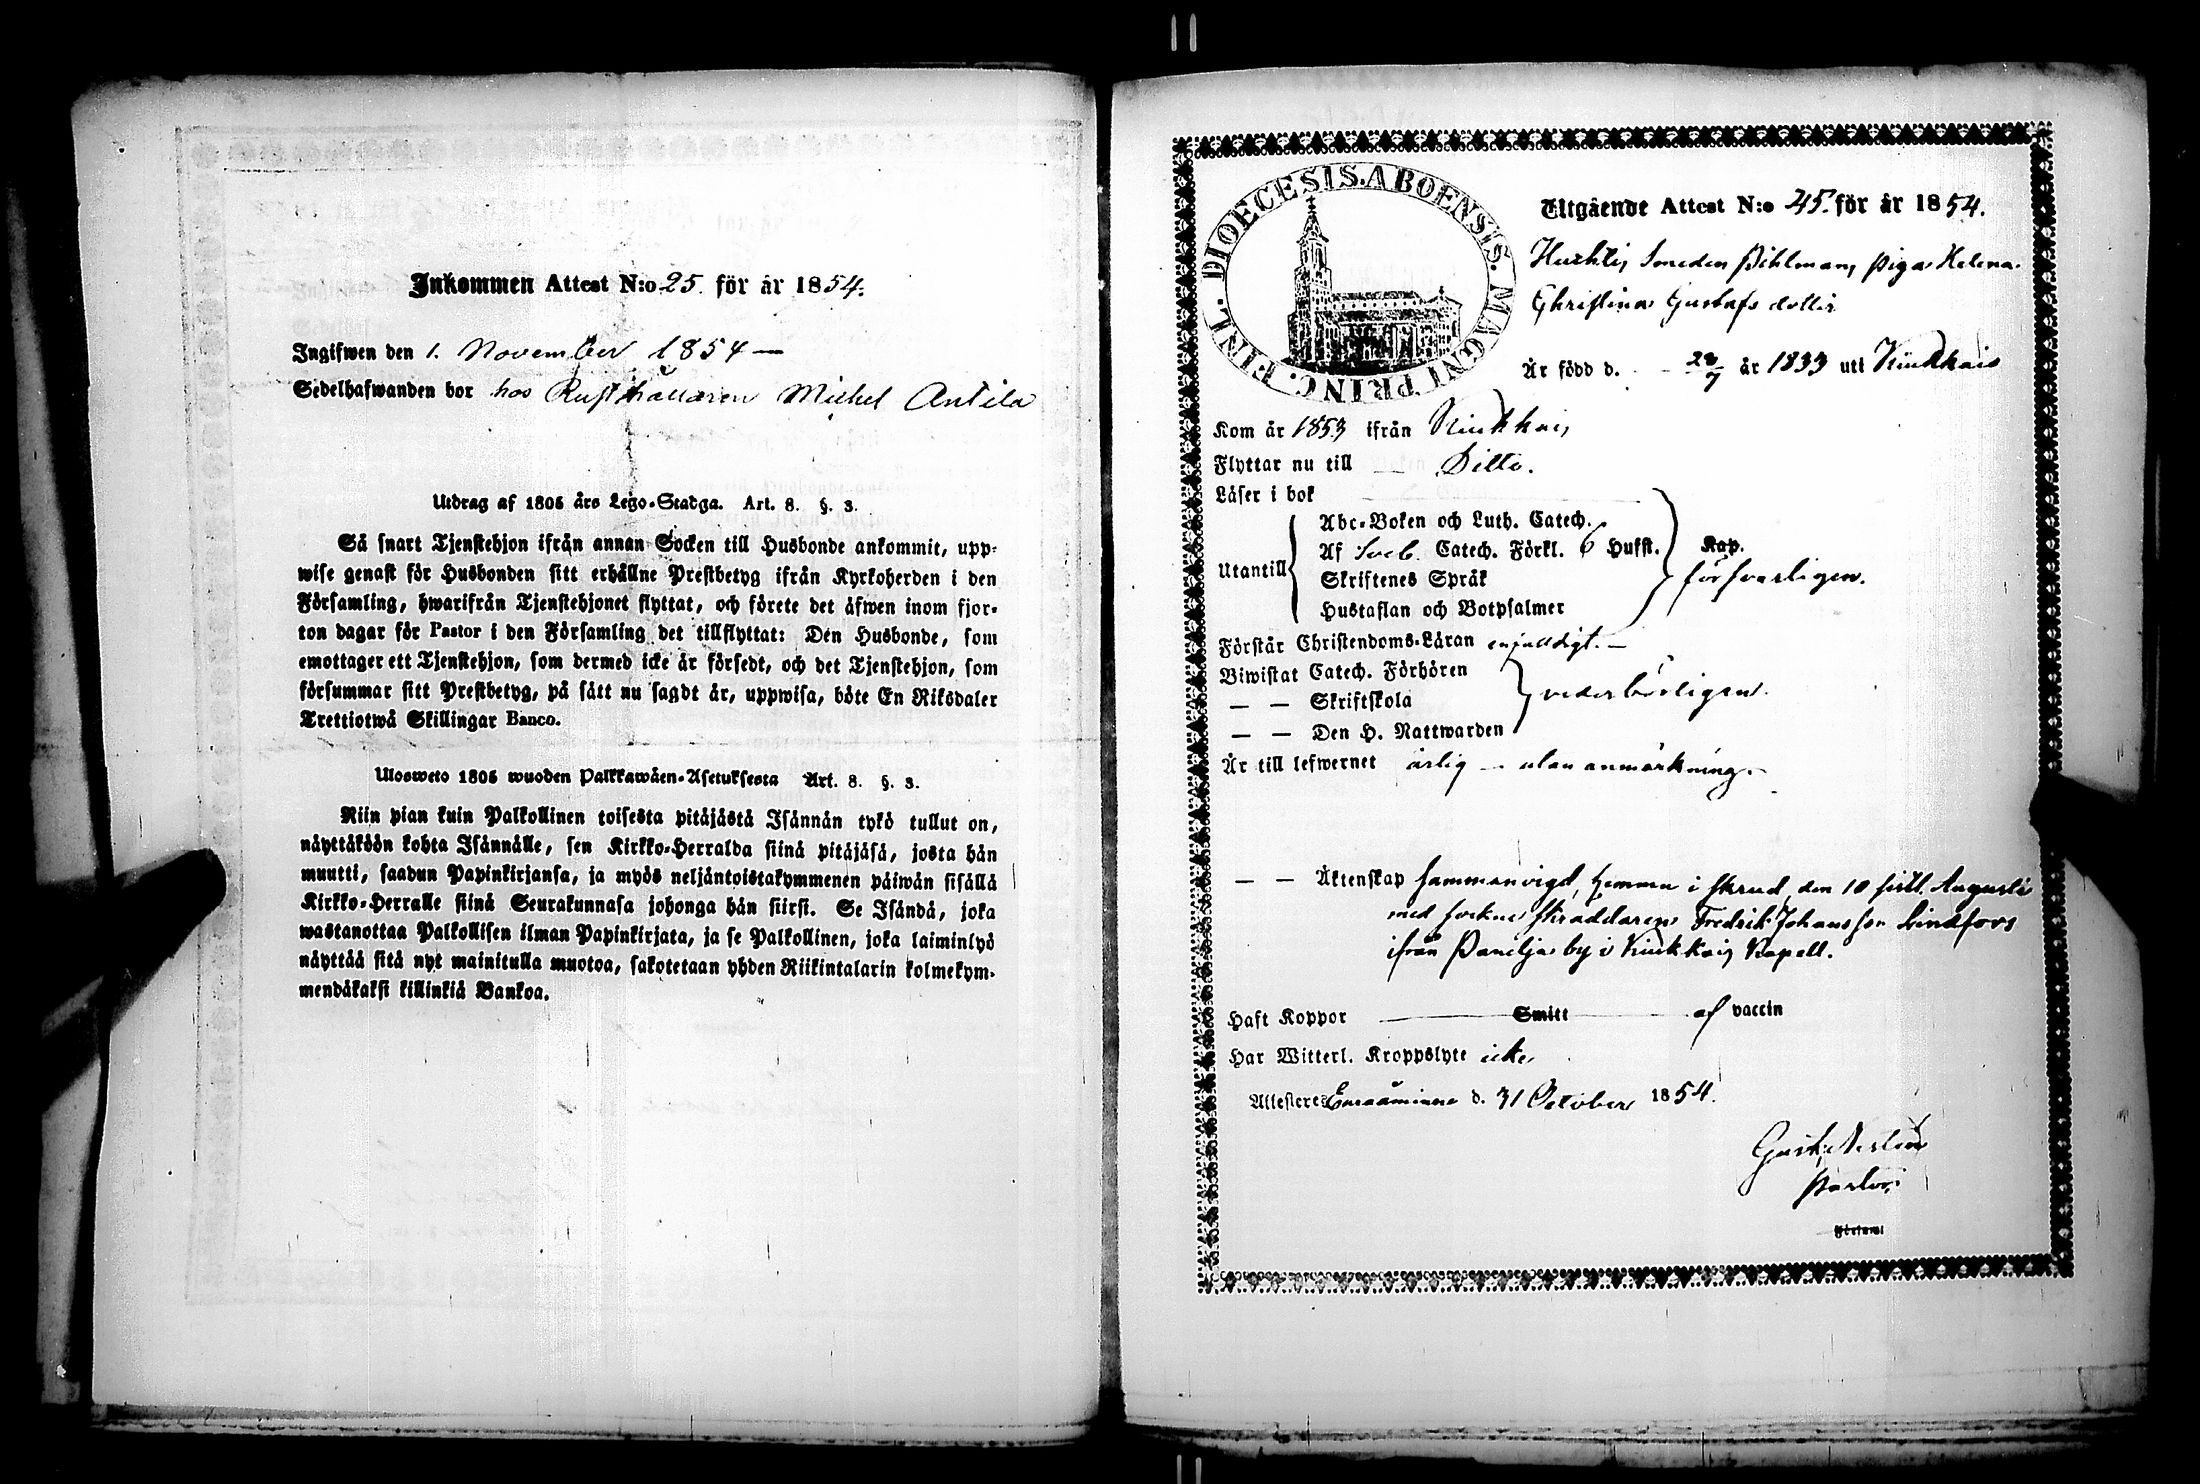 Inkommen Attest N:o 25. för år 1854.
Ingifwen den 1. November 1854 —
Sedelhafwanden bor hos Rusthållaren Michel Antila
Utdrag af 1805 års Lego-Stadga. Art. 8. §. 3.
Så snart Tjenstehjon ifrån annan Socken till Husbonde ankommit, upp-
wise genast för Husbonden sitt erhållne Prestbetyg ifrån Kyrkoherden i den
Församling, hwarifrån Tjenstehjonet flyttat, och förete det äfwen inom fjor-
ton dagar för Pastor i den Församling det tillflyttat: Den Husbonde, som
emottager ett Tjenstehjon, som dermed icke är försedt, och det Tjenstehjon, som
försummar sitt Prestbetyg, på sätt nu sagdt är, uppwisa, böte En Riksdaler
Trettiotwå Skillingar Banco.
Ulosweto 1805 wuoden Palkkawäen-Asetuksesta Art. 8. §. 3.
Niin pian kuin Palkollinen toisesta pitäjästä Isännän tykö tullut on,
näyttäköön kohta Isännälle, sen Kirkko-Herralda siinä pitäjäsä, josta hän
muutti, saadun Papinkirjansa, ja myös neljäntoistakymmenen päiwän sisällä
Kirkko-Herralle siinä Seurakunnasa johonga hän siirsi. Se Isändä, joka
wastanottaa Palkollisen ilman Papinkirjata, ja se Palkollinen, joka laiminlyö
näyttää sitä nyt mainitulla muotoa, sakotetaan yhden Riikintalarin kolmekym-
mendäkaksi killinkiä Bankoa.
DIOECESIS. ABOENSIS. MAGNI PRINC. FINL.
Utgående Attest N:o 45. för år 1854.
Smeden Pihlman, Piga Helena
Christina Gustafs dotter
Är född d. 23/7 år 1833 uti Kiukkais
Kom år 1853 ifrån Kiukkais
Flyttar nu till — Ditto.
Läser i bok
Abc-Boken och Luth. Catech.
Af Sveb. Catech. Förkl. 6 Hufst. Kap.
Utantill
Skriftenes Språk försvarligen.
Hustaflan och Botpsalmer
Förstår Christendoms-Läran enfaldigt. —
Biwistat Catech. Förhören
— — Skriftskola vederbörligen.
— — Den H. Nattwarden
Är till lefwernet ärlig — utan anmärkning. —
— — Äktenskap sammanvigd, hemma i Skrud, den 10 sistl. Augusti
med sockne skräddaren Fredrik Johansson Lindfors
ifrån Paneljas by i Kiukkais Kapell.
Haft Koppor — Smitt — af vaccin
Har Witterl. Kroppslyte icke
Attesteres Euraåminne d. 31 October 1854.
Pastor
Församl